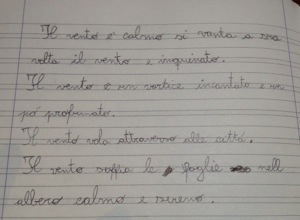 Il vento è calmo si vanta a sua
volta il vento e inquinato.
Il vento è un vortice incantato e un
pò profumato.
Il vento vola attraverso alle città.
Il vento soffia le foglie nell
albero calmo e sereno.